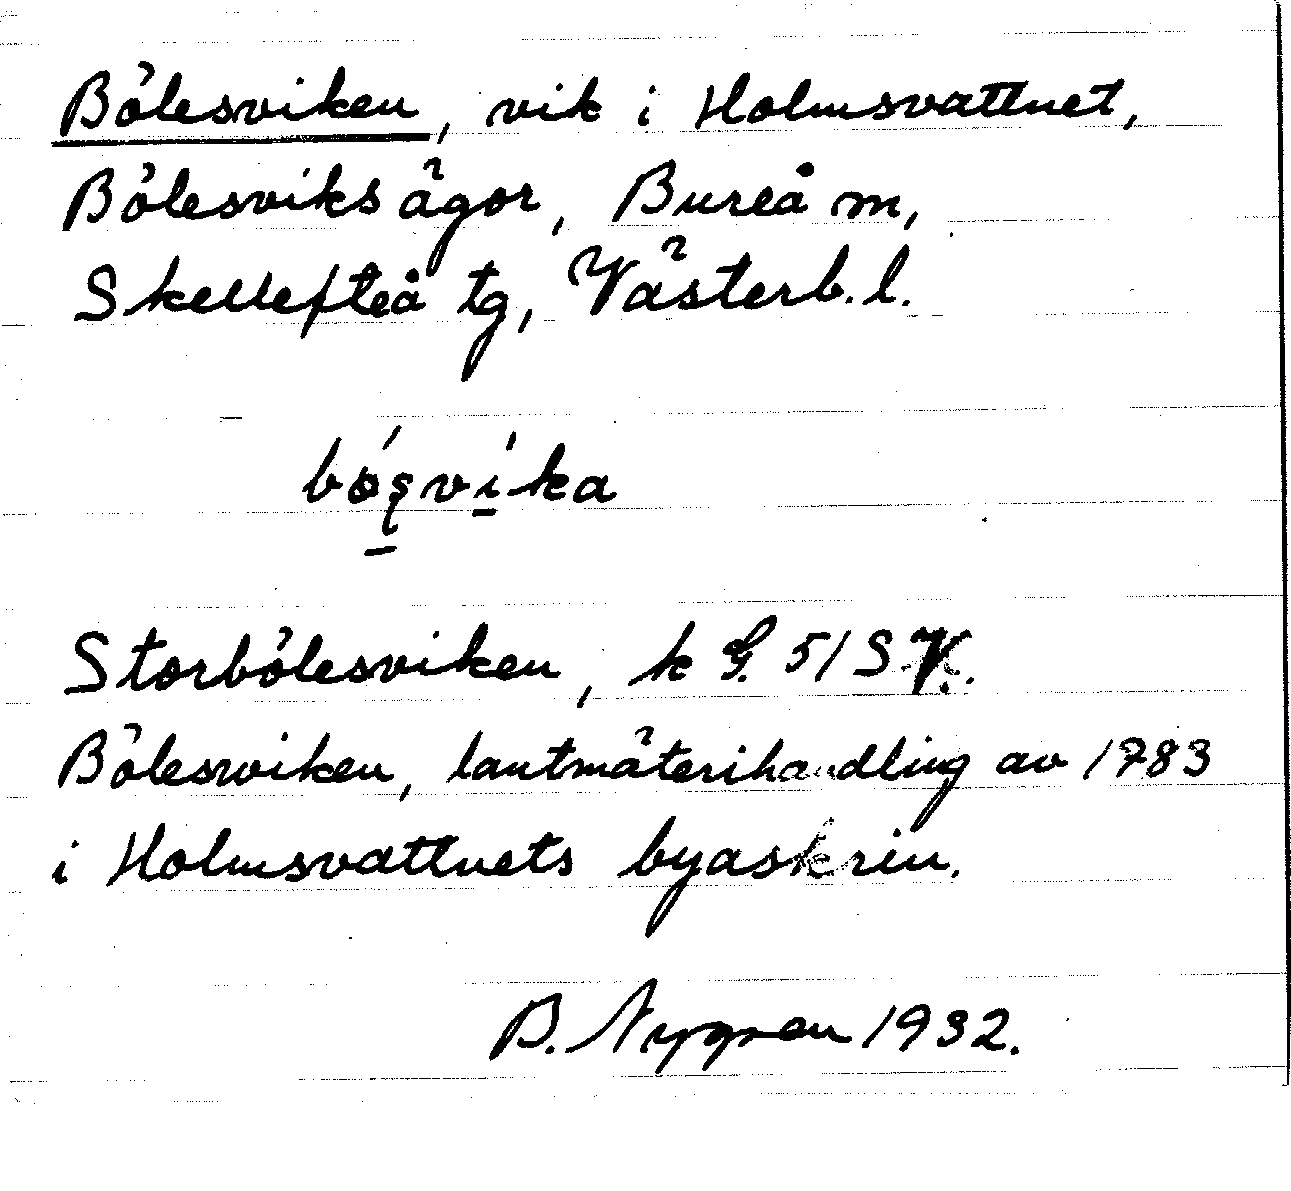 Bölesviken, vik i Holmsvattnet,
Bölesviks ägor, Bureå m,
Skellefteå tg, Västerb. l.
Storbölesviken, k G. 51 S V.
Bölesviken, lantmäterihandling av 1783
i Holmsvattnets byaskrin.
B. Nygren 1932.